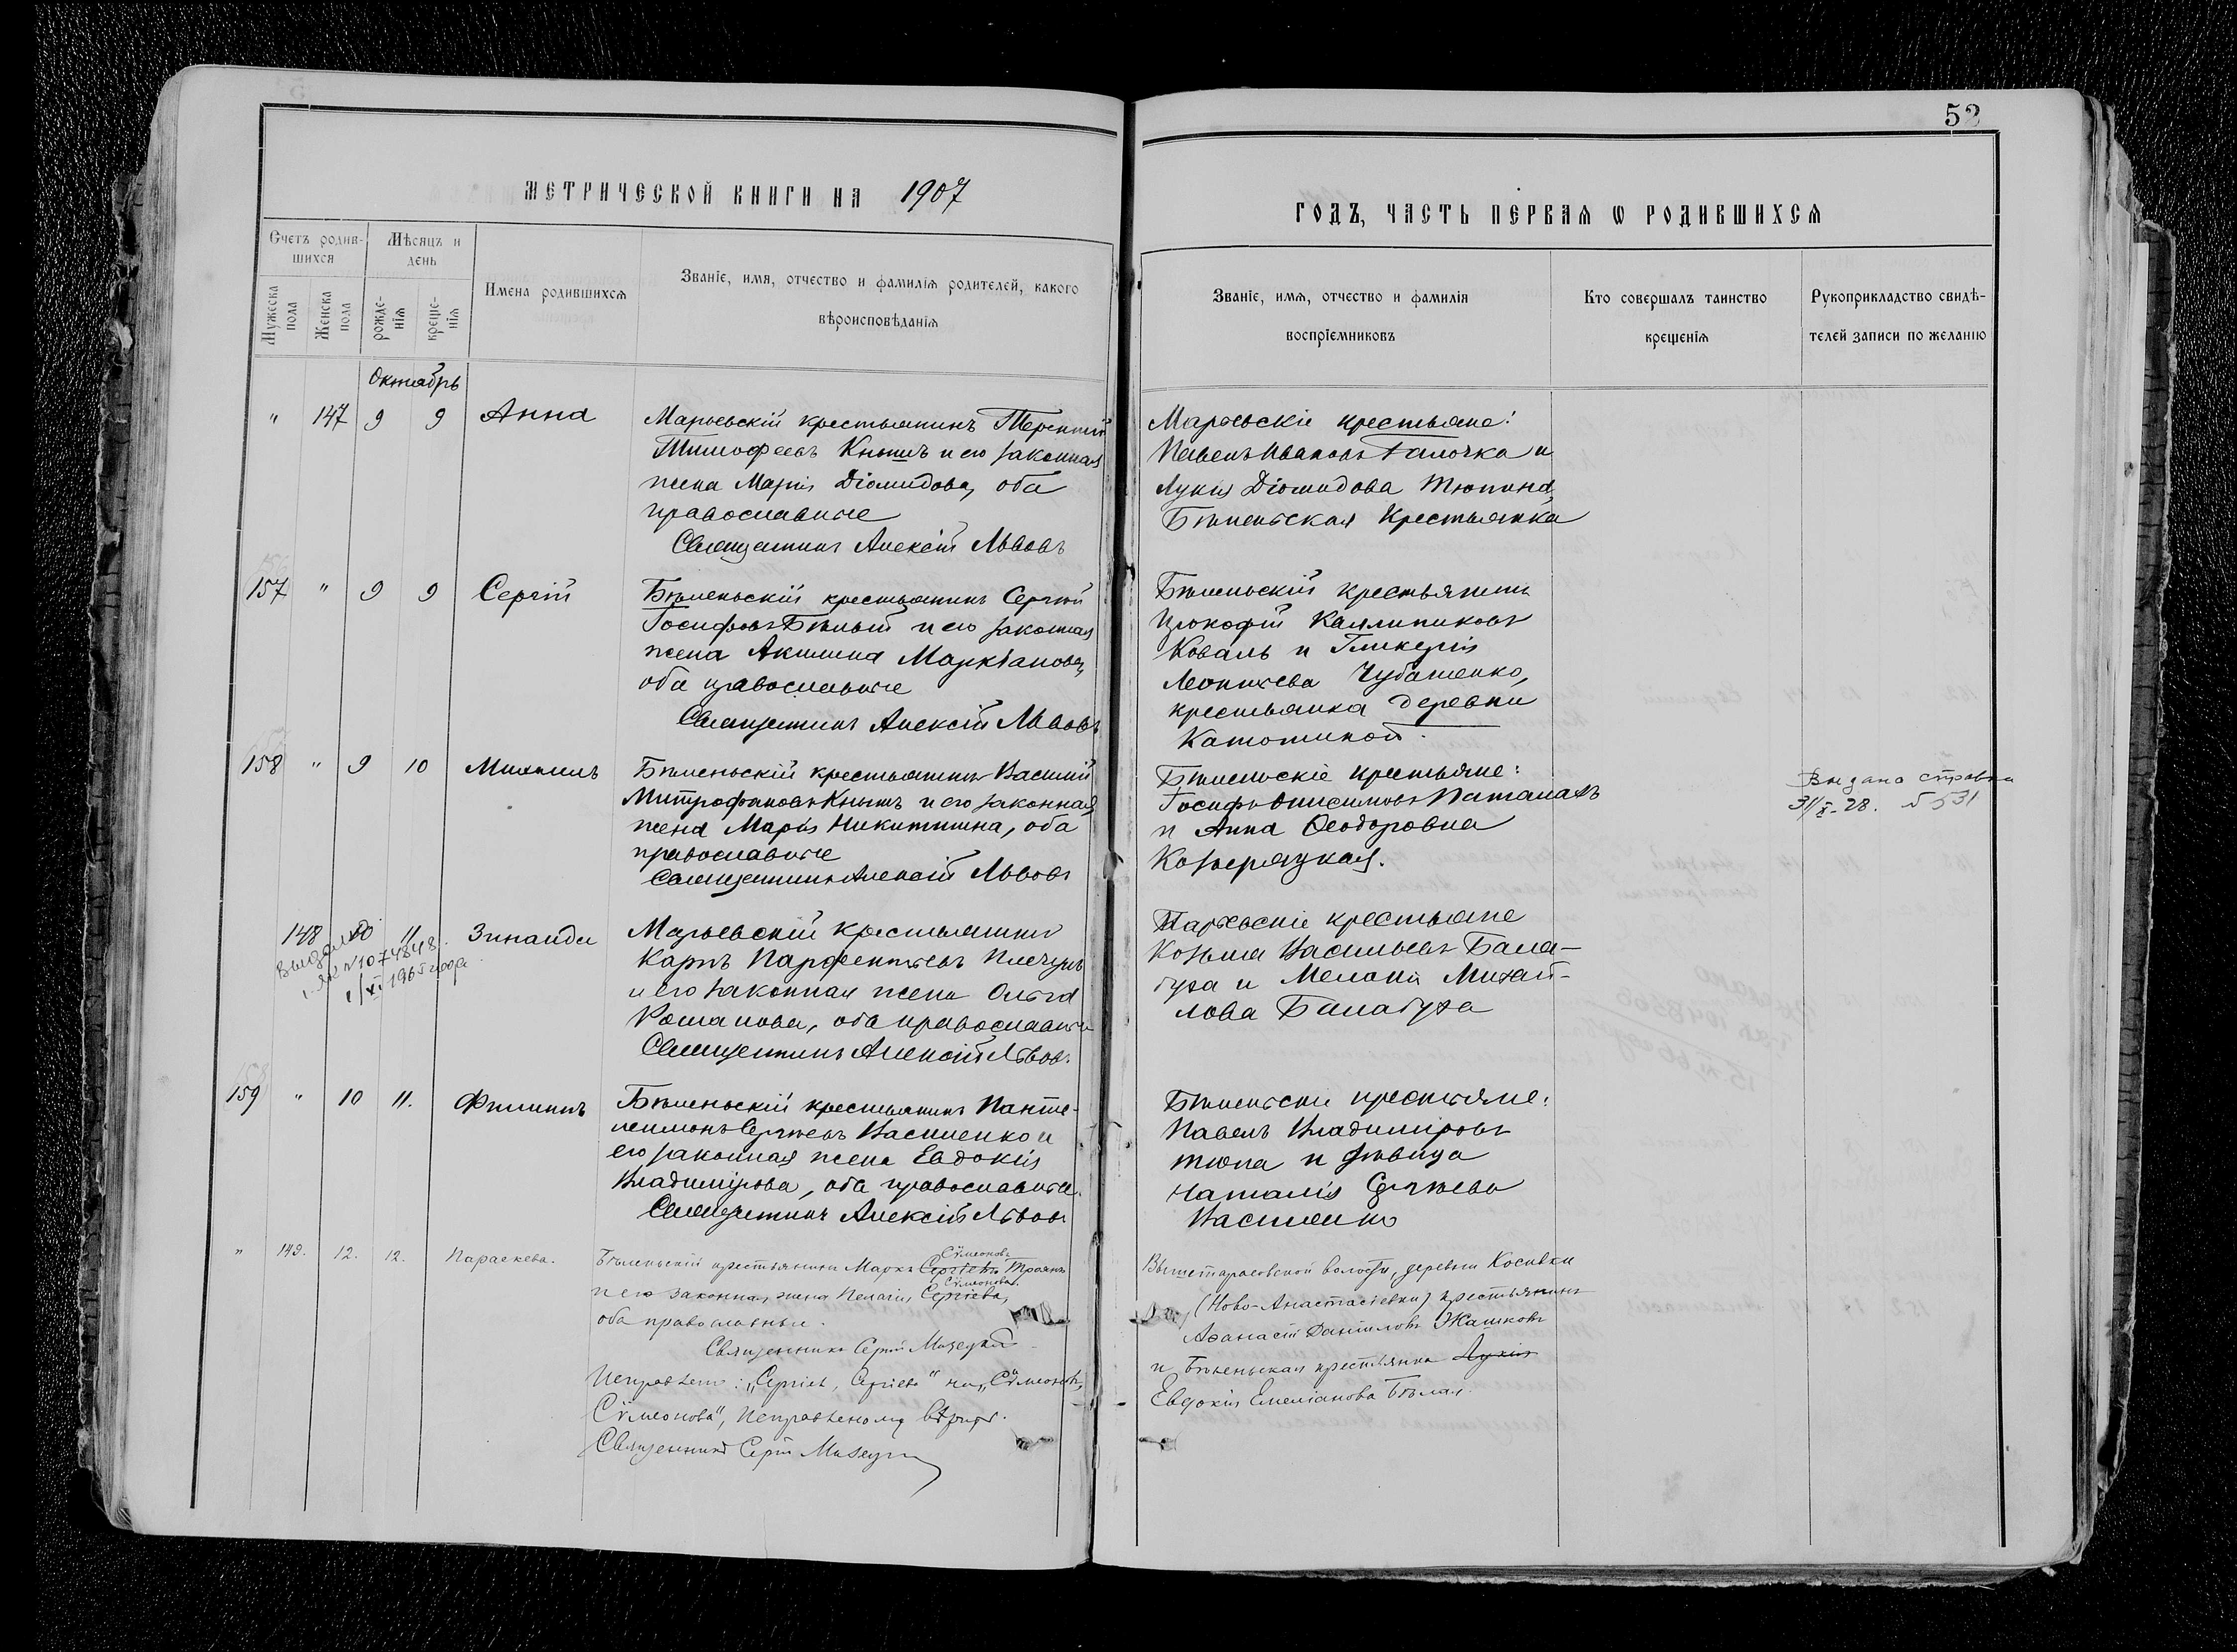 52
МЕТРИЧЕСКОЙ КНИГИ НА 1907
ГОДЪ, ЧАСТЬ ПЕРВАЯ Ѡ РОДИВШИХСЯ
Счетъ родив-
шихся
Мѣсяцъ и
день
Мужеска
пола
Женска
пола
рожде-
нія
креще-
нія
Имена родившихся
Званіе, имя, отчество и фамилія родителей, какого
вѣроисповѣданія
Званіе, имя, отчество и фамилія
воспріемниковъ
Кто совершалъ таинство
крещенія
Рукоприкладство свидѣ-
телей записи по желанію
Октябрь
" 147 9 9 Анна
Марьевскій крестьянинъ Терентій
Тимофеевъ Кнышъ и его законная
жена Марія Діомидова, оба
православные
Священникъ Алексій Львовъ
Марьевскіе крестьяне:
Павелъ Ивановъ Галочка и
Лукія Діомидова Тюпина,
Бѣленьская крестьянка
157 " 9 9 Сергій
Бѣленьскій крестьянинъ Сергій
Іосифовъ Бѣлый и его законная
жена Акилина Маркіанова,
оба православные
Священникъ Алексій Львовъ
Бѣленьскій крестьянинъ
Прокофій Каллиниковъ
Коваль и Гликерія
Леонтьева Чубатенко,
крестьянка деревни
158 " 9 10 Михаилъ
Бѣленьскій крестьянинъ Василій
Митрофановъ Кнышъ и его законная
жена Марія Никитишна, оба
православные
Священникъ Алексій Львовъ
Бѣленьскіе крестьяне:
Іосифъ Онисимовъ Паталахъ
и Анна Ѳеодоровна
Козерацкая.
Выдана справка
31/X-28. № 531
148 10 11 Зинаида
Выдано
1/XI 1965 года
Марьевскій крестьянинъ
Карпъ Парфентьевъ Плечунъ
и его законная жена Ольга
Романова, оба православные
Священникъ Алексій Львовъ.
Марьевскіе крестьяне
Козьма Васильевъ Бала-
гура и Меланія Михай-
лова Балагура
159 " 10 11. Филиппъ
Бѣленьскій крестьянинъ Панте-
леимонъ Сергѣевъ Василенко и
его законная жена Евдокія
Владимірова, оба православные.
Священникъ Алексій Львовъ
Бѣленьскіе крестьяне:
Павелъ Владиміровъ
Тюпа и дѣвица
Наталія Сергѣева
Василенко
" 149. 12. 12. Параскева.
Сѵмеоновъ
Бѣленьскій крестьянинъ Маркъ Сергѣевъ Троянъ
Сѵмеонова
и его законная жена Пелагія Сергіева,
оба православные.
Священникъ Сергій Мазецкій
Исправлено: „Сергіевъ, Сергіева" на „Сѵмеоновъ,
Сѵмеонова", исправленому вѣрить.
Священникъ Сергій
Вышетарасовской волости, деревни Косивки
(Ново-Анастасіевки) крестьянинъ
Аѳанасій Даниловъ Жашковъ
и Бѣленьская крестьянка Лукія
Евдокія Емеліанова Бѣлая.